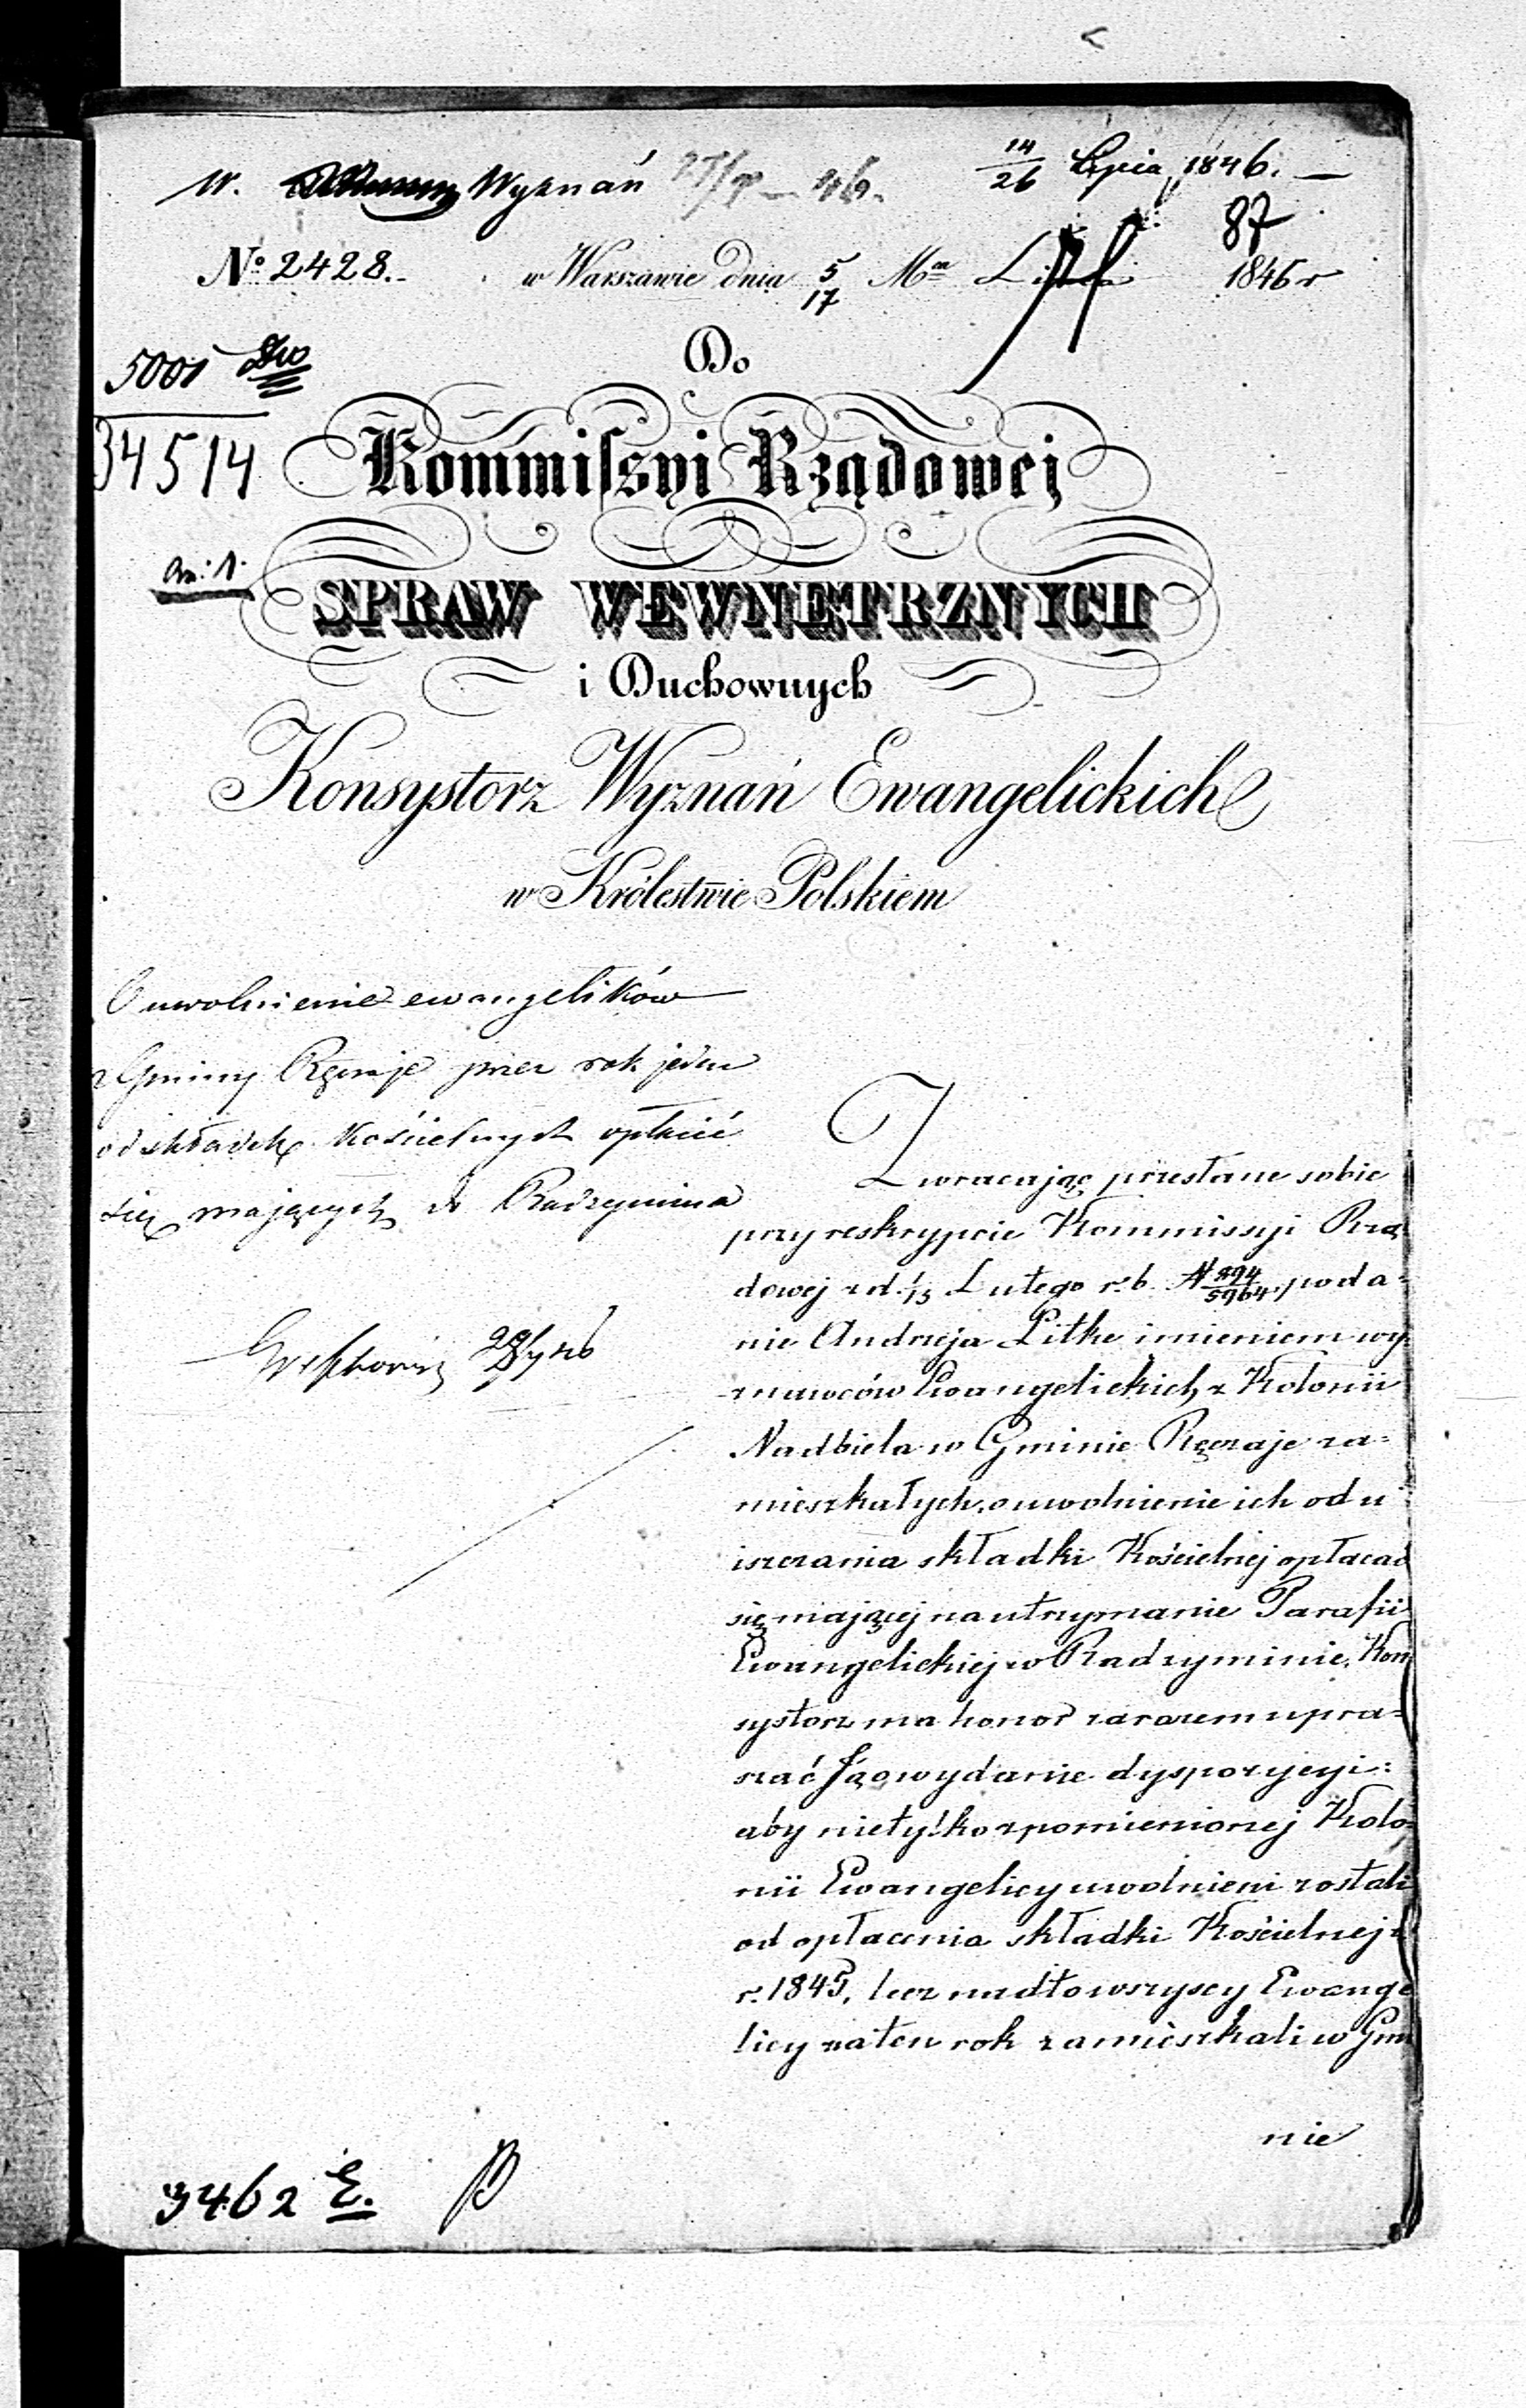 W. Wyznań 14/26 Lipca 1846. —
87
№ 2428. w Warszawie dnia 5/17 Mca 1846 r
5001
34514
Do
Kommissyi Rządowej
an: 1.
SPRAW WEWNĘTRZNYCH
i Duchownych
Konsystorz Wyznań Ewangelickich
w Królestwie Polskiem
O uwolnienie ewangelików
z Gminy Ręczaje przez rok jeden
od składek Kościelnych opłacić
się mających do Radzymina
Zwracając przesłane sobie
przy reskrypcie Kommissyi Rzą-
dowej z d. 1/13 Lutego r. b. N 894/5964, poda=
nie Andrzeja Litke imieniem wy-
znawców Ewangelickich z Kolonii
Nadbiela w Gminie Ręczaje za=
mieszkałych, o uwolnienie ich od u
iszczania składki Kościelnej opłacać
się mającej na utrzymanie Parafii
Ewangelickiej w Radzyminie, Kon
systorz ma honor zarazem upra=
szać Ją o wydanie dyspozycyi:
aby nietylko zpomienionej Kolo=
nii Ewangelicy uwolnieni zostali
od opłacenia składki Kościelnej z
r. 1845, lecz nadto wszyscy Ewange
licy na ten rok zamieszkali w Gmi
nie
3462 E.